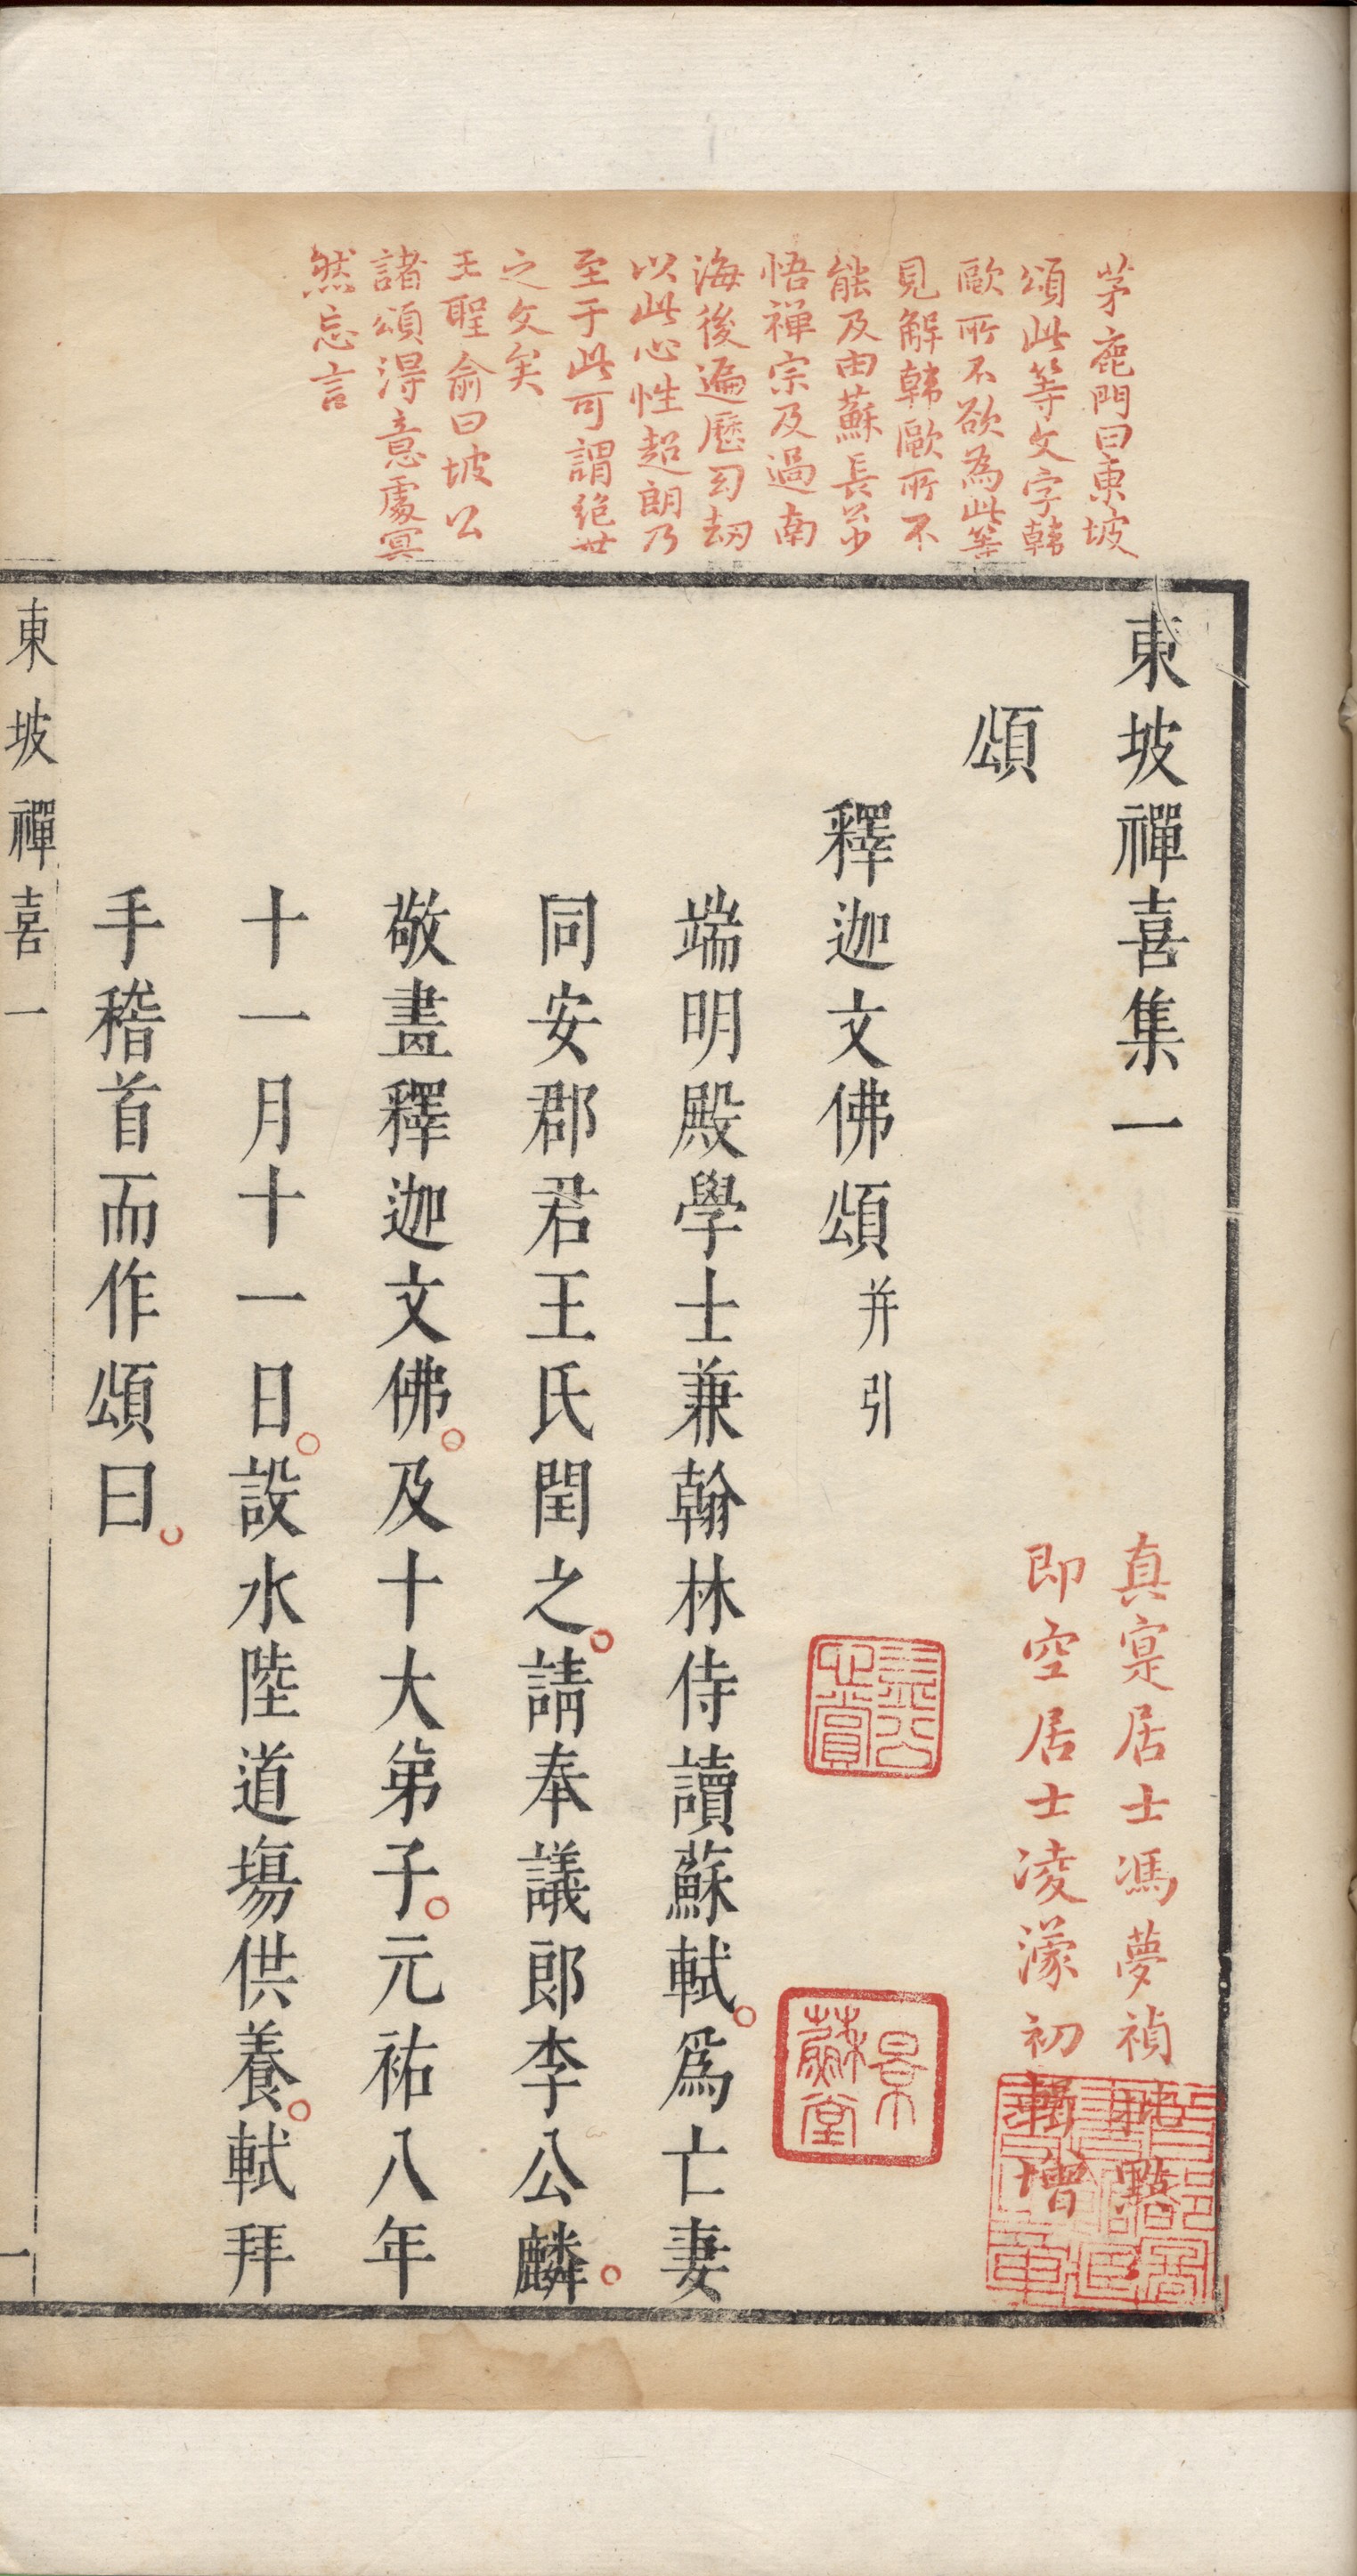 茅鹿門曰東坡
頌此等文字韓
歐所不欲為此等
見解韓歐所不
能及由蘇長公少
悟禪宗及過南
海後遍歷幻劫
以此心性超朗乃
至于此可謂絶世
之文矣
王聖俞曰坡公
諸頌淂意處冥
然忘言
東坡禪喜集一
真寔居士馮夢禎批點
即空居士凌濛初輯增
頌
釋迦文佛頌并引
端明殿學士兼翰林侍讀蘇軾。爲亡妻
同安郡君王氏閏之。請奉議郎李公麟。
敬畫釋迦文佛。及十大弟子。元祐八年
十一月十一日。設水陸道場供養。軾拜
手稽首而作頌曰。
東坡禪喜一
一
景蘇堂